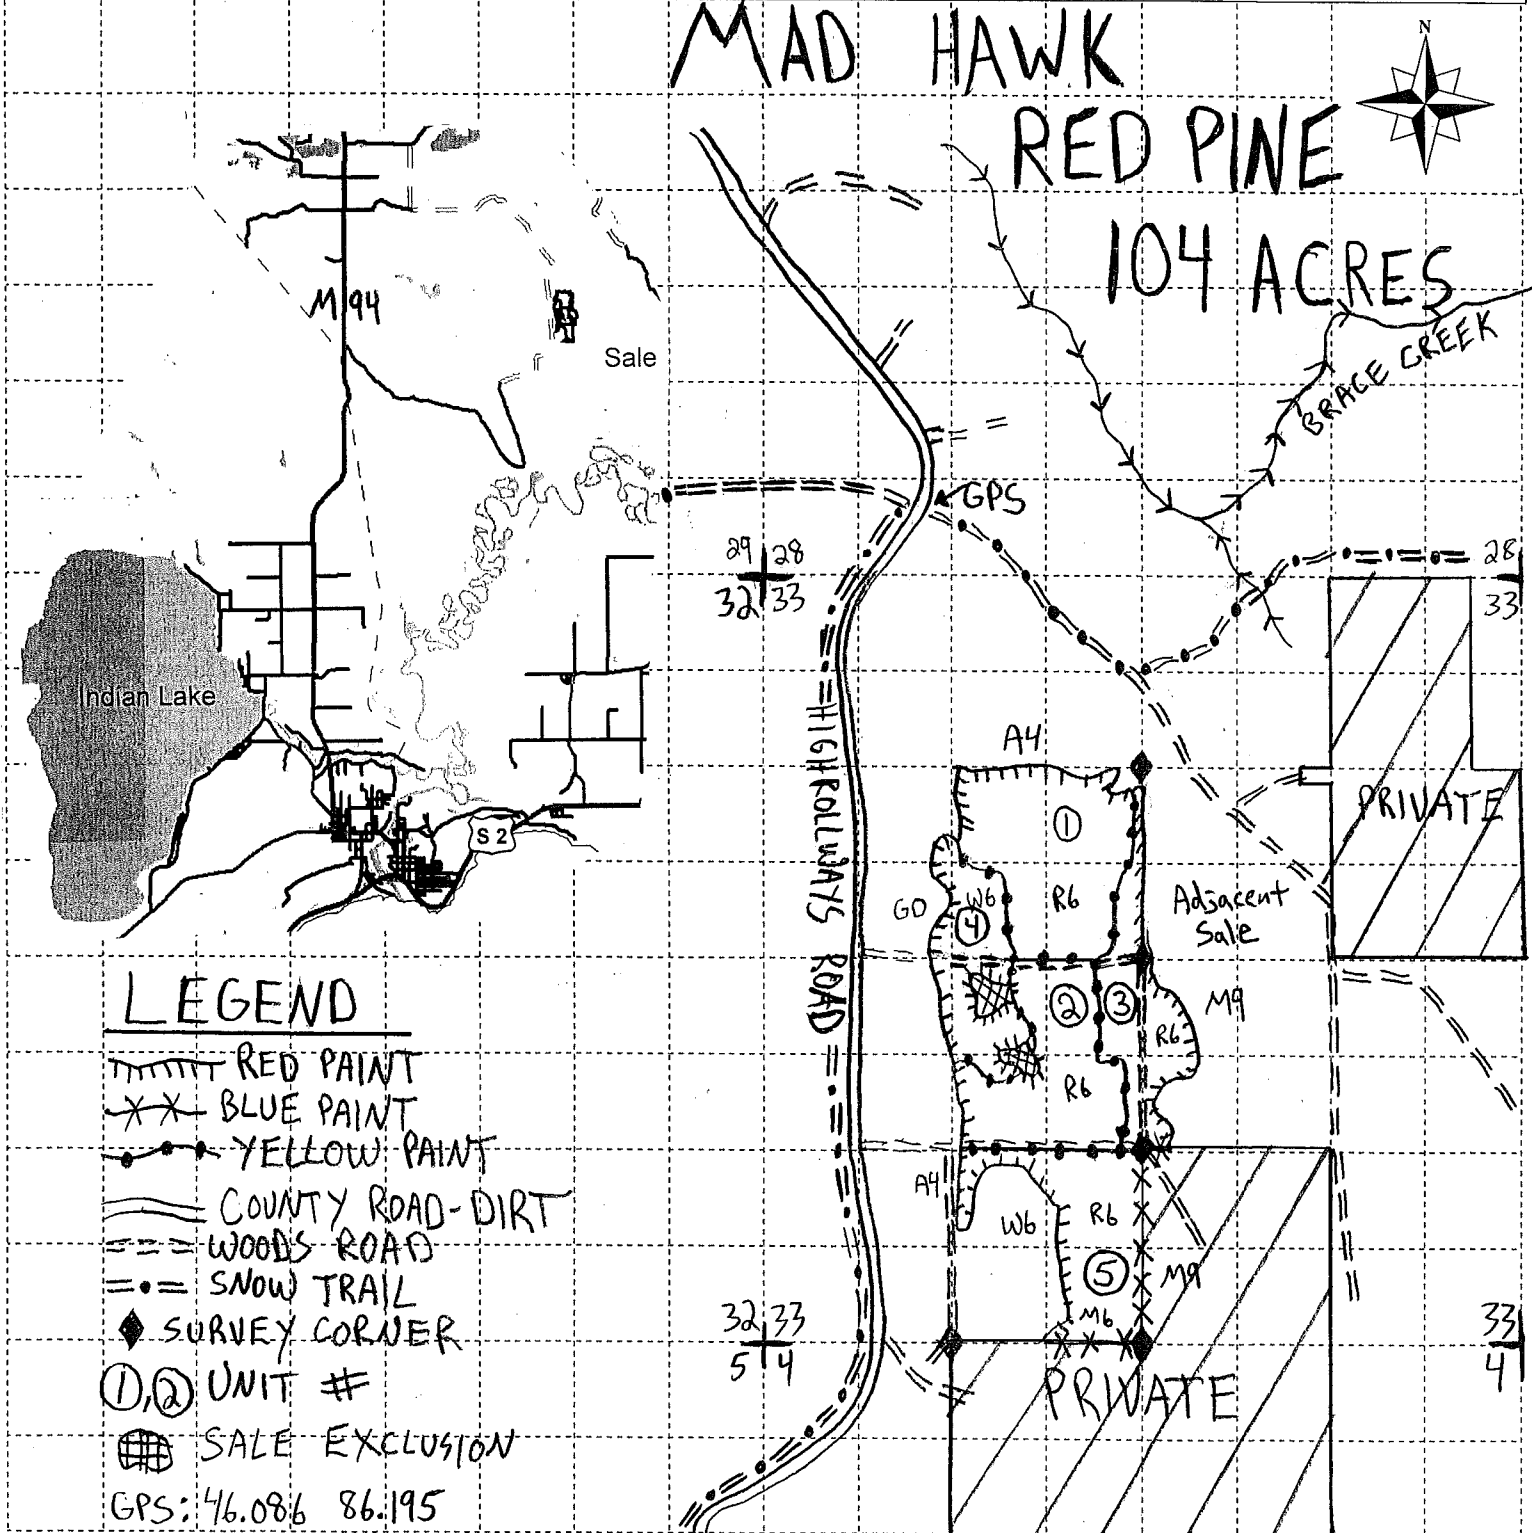 MAD HAWK
RED PINE
104 ACRES
N
M 94
Sale
BRACE CREEK
GPS
29 28
32 33
28
33
Indian Lake
S 2
HIGHROLLWAYS ROAD
A4
1
PRIVATE
R6
W6
GD
4
Adjacent
Sale
2
3
M9
R6
R6
A4
W6
R6
5
M9
M6
32 33
5 4
33
4
PRIVATE
LEGEND
RED PAINT
BLUE PAINT
YELLOW PAINT
COUNTY ROAD-DIRT
WOODS ROAD
SNOW TRAIL
SURVEY CORNER
1,2 UNIT #
SALE EXCLUSION
GPS: 46.086 86.195